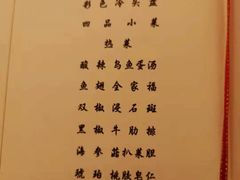 彩色冷头盘
四品小菜
热菜
酸辣乌鱼蛋汤
鱼翅全家福
双椒浸石斑
黑椒牛肋排
海参菇扒菜胆
琥珀桃豌皂仁